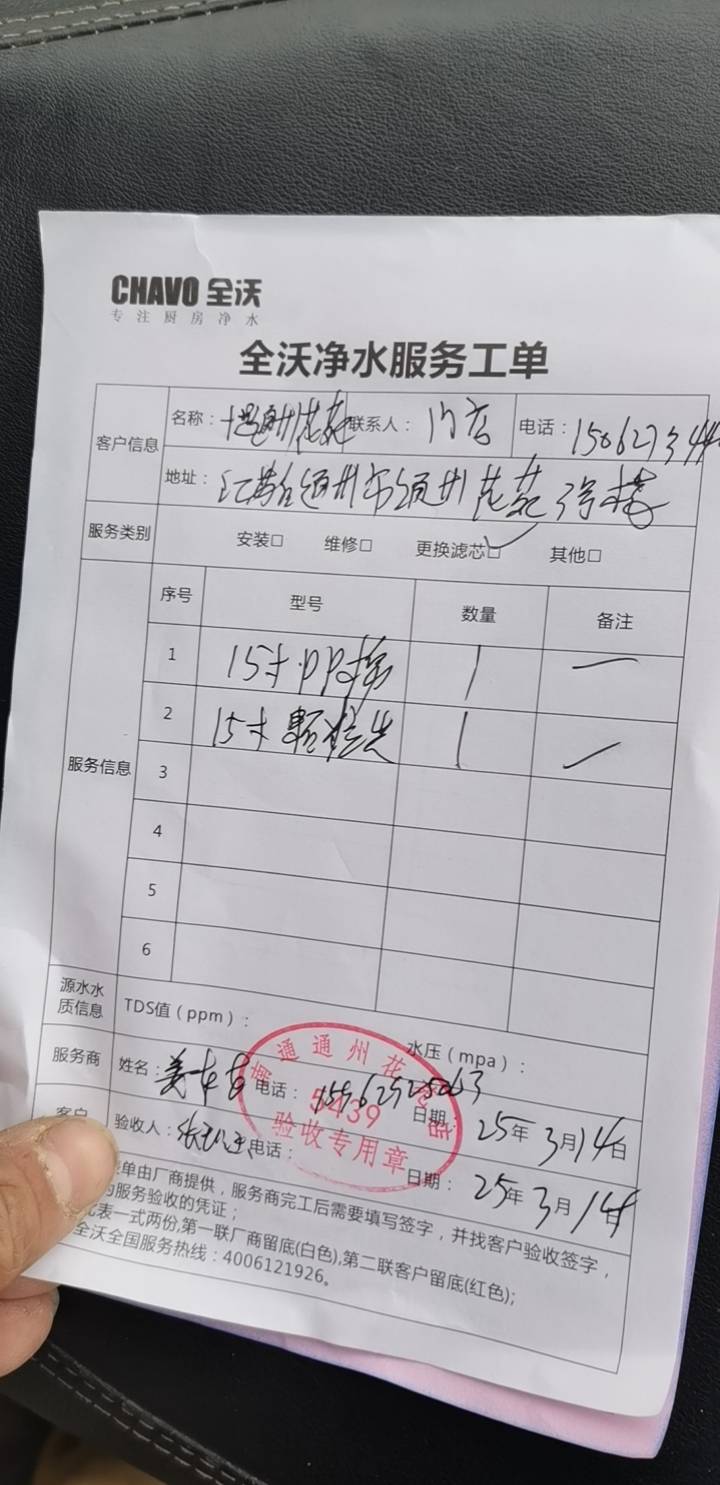 CHAVO 全沃
专注厨房净水
全沃净水服务工单
客户信息 名称： 通州花苑 联系人： 门店 电话：
地址： 通州 花苑3号楼
服务类别 安装□ 维修□ 更换滤芯□ 其他□
服务信息 序号 型号 数量 备注
1 15寸PP棉 1 一
2 15寸颗粒炭 1 一
3
4
5
6
源水水质信息 TDS值（ppm）： 水压（mpa）：
服务商 姓名： 电话： 日期： 25年3月14日
客户 验收人： 电话： 日期： 25年3月14日
通通州花
5439
验收专用章
单由厂商提供，服务商完工后需要填写签字，并找客户验收签字，
服务验收的凭证；
表一式两份,第一联厂商留底(白色),第二联客户留底(红色);
全沃全国服务热线：4006121926。